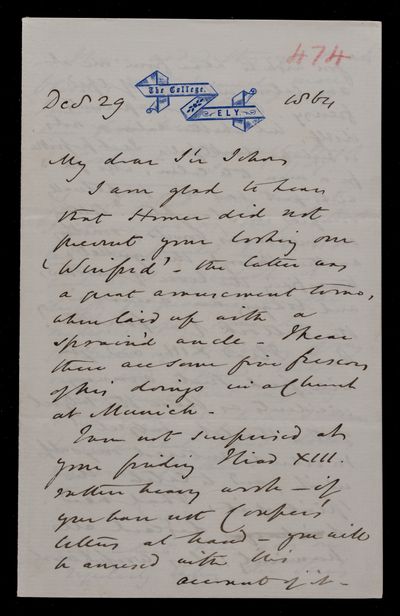 474
The College.
ELY.
Decr 29 1864
My dear Sir John
I am glad to hear
that Homer did not
prevent your looking over
'Winfrid' - the latter was
a great amusement to me,
when laid up with a
sprained ancle - I hear
there are some fine frescoes
of his doings in a Church
at Munich -
I am not surprised at
your finding Iliad XIII.
rather heavy work - if
you have not Cowper's
letters at hand - you will
be amused with his
account of it -